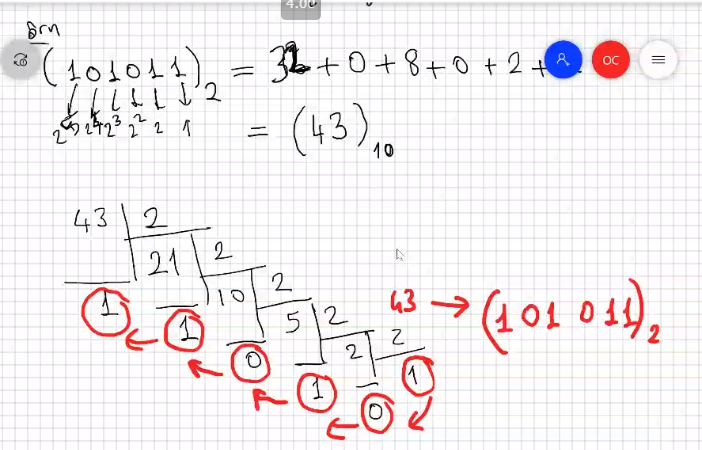 4.00
Örn
(101011)₂ = 32 + 0 + 8 + 0 + 2 +
2⁵ 2⁴ 2³ 2² 2 1
= (43)₁₀
OC
43 2
21 2
1 10 2
1 5 2
0 2 2
1 0 1
43 → (101011)₂